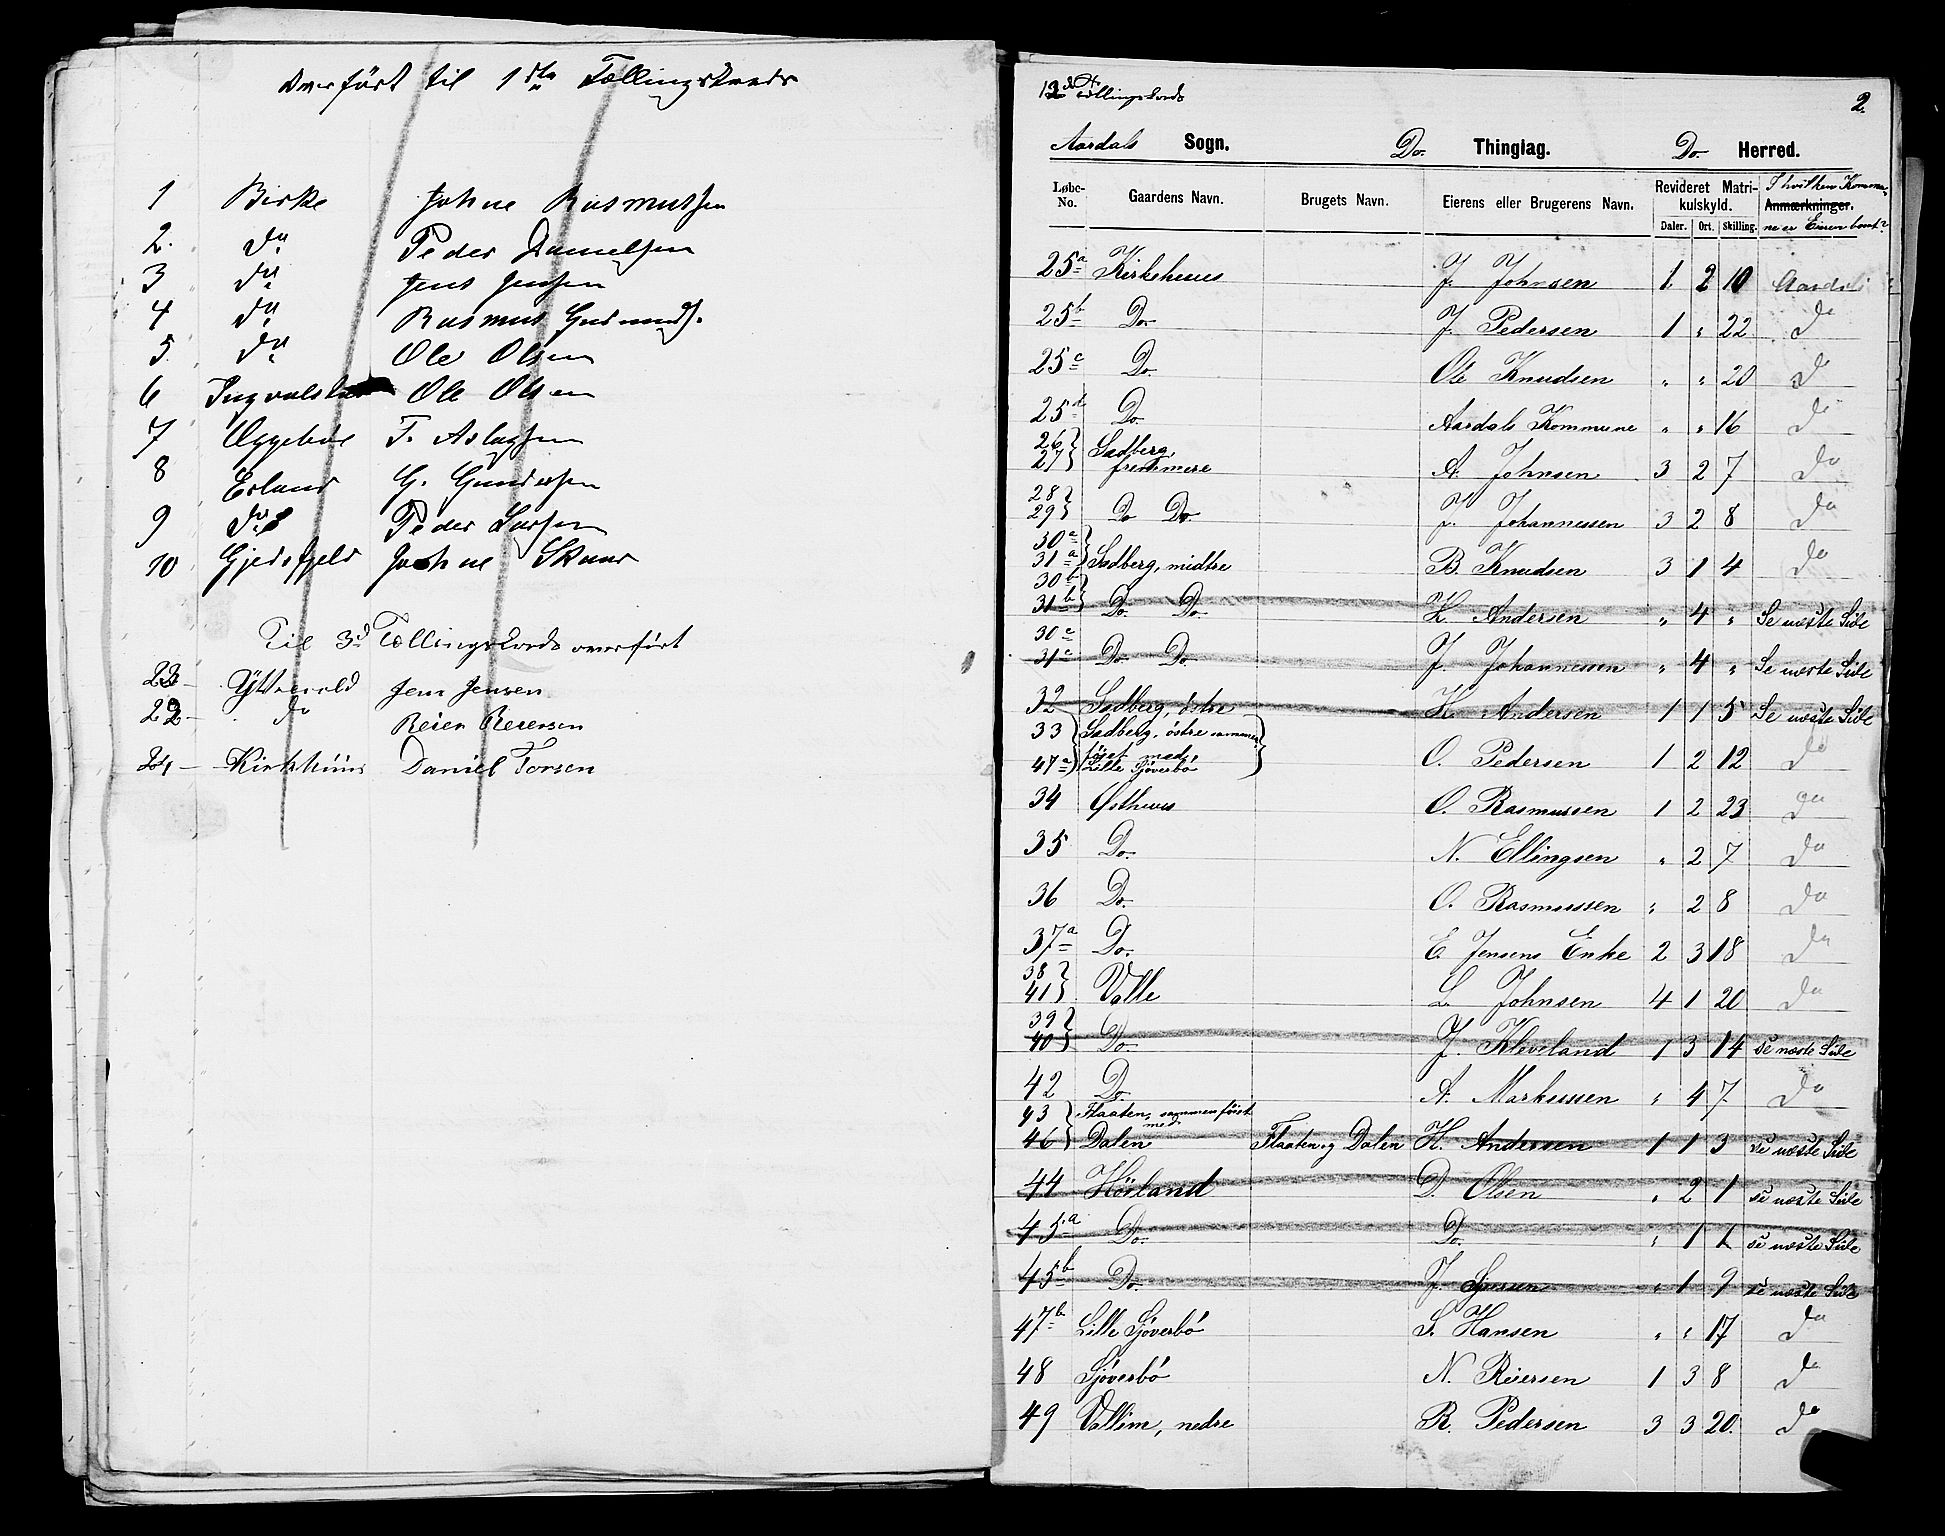 Overført til 1ste Tællingskreds
1 Birke Johne Rasmussen
2. do Peder Danielsen
3 do Jens Jensen
4 do Rasmus Gudmunds.
5 do Ole Olsen
6 Ole Olsen
7 T. Aslagsen
8 Erland G. Gundersen
9 do Peder Larsen
10 Gjedsfjeld Johne
Til 3d Tællingskreds overført
Jens Jensen
22 - do Reier Reiersen
Kirkhuus Daniel Torsen
Tællingskreds
2.
Aardals Sogn. Do. Thinglag. Do. Herred.
Løbe-No. Gaardens Navn. Brugets Navn. Eierens eller Brugerens Navn. Revideret Matrikulskyld. Anmærkninger. I hvilken Kommune er Eieren bosat?
Daler. Ort. Skilling.
25a Kirkehuus J. Johnsen 1 2 10 Aardal
25b Do. J. Pedersen 1 " 22 do
25c Do. Ole Knudsen " " 20 do
25d Do. Aardals Kommune " " 16 do
26 27 Sadberg, fremmere A. Johnsen 3 2 7 do
28 29 Do Do. J. Johannessen 3 2 8 do
30a 31a Sadberg, midtre B. Knudsen 3 1 4 do
30b 31b Do. Do. H. Andersen " 4 " Se næste Side
30c 31c Do. Do. J. Johannessen " 4 " Se næste Side
32 Sadberg, östre H. Andersen 1 1 5 Se næste Side
33 47a Sadberg, östre sammenföiet med Lille Sjöverbö O. Pedersen 1 2 12 do
34 Østhuus O. Rasmussen 1 2 23 do
35 Do. N. Ellingsen " 2 7 do
36 Do. O. Rasmussen " 2 8 do
37a Do. E. Jensens Enke 2 3 18 do
38 41 Valle L. Johnsen 4 1 20 do
39 40 Do. J. Kleveland 1 3 14 se næste Side
42 Do. A. Markussen " 4 7 do
43 46 Flaaten, sammenföiet med Dalen Flaaten og Dalen H. Andersen 1 1 3 se næste Side
44 Hösland D. Olsen " 2 1 se næste Side
45a Do. Do. " 1 1 se næste Side
45b Do. J. " 1 9 se næste Side
47b Lille Sjöverbö S. Hansen " " 17 do
48 Sjöverbö N. Reiersen 1 3 8 do
49 Vallim, nedre R. Pedersen 3 3 20. do